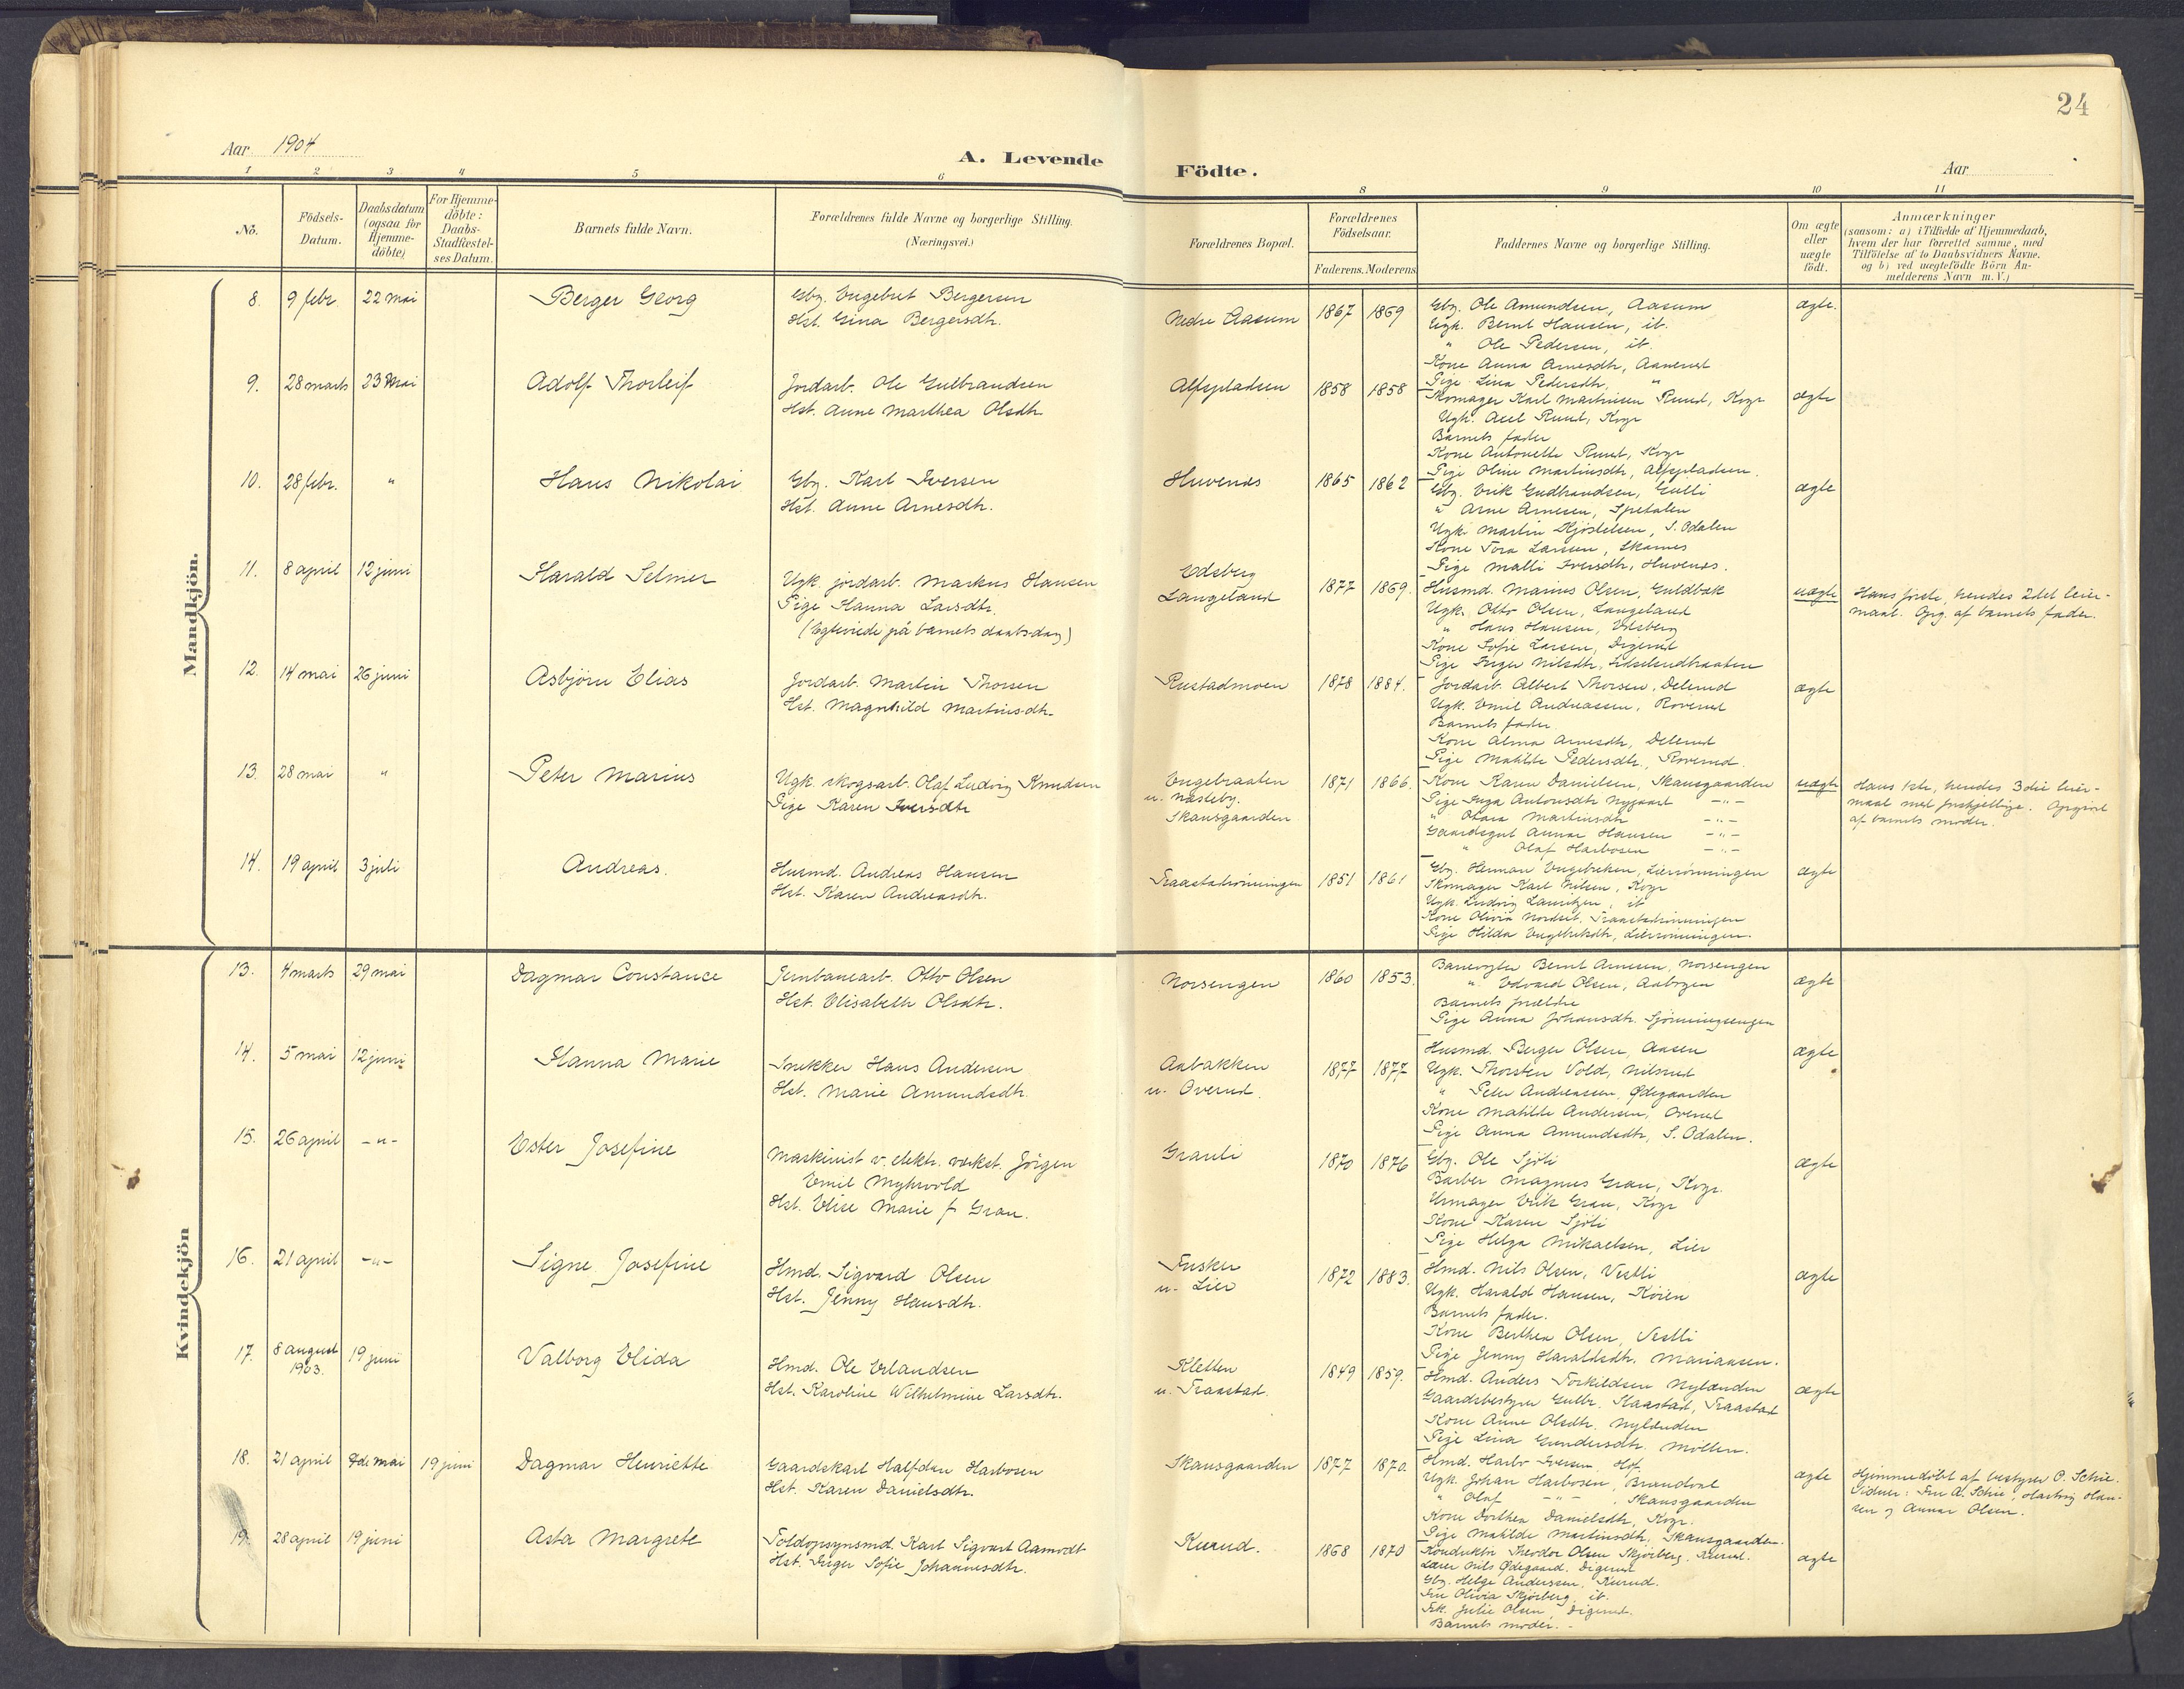 24
Aar 1904
A. Levende
Födte.
Aar
1 2 3 4 5 6 8 9 10 11
No.
Födsels-Datum.
Daabsdatum (ogsaa for Hjemme-döbte)
For Hjemme-döbte: Daabs-Stadfæstel-ses Datum.
Barnets fulde Navn.
Forældrenes fulde Navne og borgerlige Stilling. (Næringsvei.)
Forældrenes Bopæl.
Forældrenes Födselsaar.
Faderens. Moderens
Faddernes Navne og borgerlige Stilling.
Om ægte eller uægte födt.
Anmærkninger
(saasom: a) i Tilfælde af Hjemmedaab,
hvem der har forrettet samme, med
Tilföielse af to Daabsvidners Navne,
og b) ved uægtefödte Börn An-
melderens Navn m.V.)
Mandkjön.
8. 9 febr. 22 mai Berger Georg
Gbr. Engebret Bergersen
Hst. Gina Bergersdtr.
Nedre Aasum 1867 1869
Gbr. Ole Amundsen, Aasum
Ugk. Bernt Hansen, ib.
" Ole Pedersen, ib.
Kone Anna Arnesdtr, Aanerud
Pige Lina Pedersdtr, "
ægte.
9. 28 marts 23 Mai Adolf Thorleif
Jordarb. Ole Gulbrandsen
Hst. Anne Marthea Olsdtr.
Alfspladsen 1858 1858
Skomager Karl Martinsen Ruud, Kvgr
Ugk. Axel Ruud, Kvgr
Barnets fader
Kone Antonette Ruud, Kvgr
Pige Oline Martinsdtr, Alfspladsen.
ægte
10. 28 febr. " Hans Nikolai
Gbr. Karl Iversen
Hst. Anne Arnesdtr.
Huvenes 1865 1862
Gbr. Erik Gudbrandsen, Gulli
" Arne Arnesen, Spetalen
Ugk. Martin Kjöstelsen, S. Odalen
Kone Tora Larsen, Skarnes
Pige Malli Iversdtr, Huvenes.
ægte
11. 8 april 12 juni Harald Selmer
Ugk. jordarb. Markus Hansen
Pige Hanna Larsdtr.
(Egteviede på barnets daabsdag)
Edsberg
Langeland
1877 1869.
Husmd. Marius Olsen, Guldbæk
Ugk. Otto Olsen, Langeland
" Hans Hansen, Edsberg
Kone Sofie Larsen, Digerud
Pige Inger Nilsdtr,
uægte
Hans förste, hendes 2det leier-
maal. Opg. af barnets fader.
12. 14 mai 26 juni Asbjörn Elias
Jordarb. Martin Thorsen
Hst. Magnhild Martinsdtr.
Rustadmoen 1878 1884.
Jordarb. Albert Thorsen, Delerud
Ugk. Emil Andreassen, Roverud
Barnets fader
Kone Alma Arnesdtr, Delerud
Pige Mathilde Pedersdtr, Roverud.
ægte
13. 28 mai " Peter Marius
Ugk. skogsarb. Olaf Ludvig Knudsen
Pige Karen Iversdtr
Engebraaten
u. Næsteby.
Skansgaarden
1871 1866.
Kone Karen Danielsen, Skansgaarden
Pige Inga Antonsdtr Nygaard -"-
" Olava Martinsdtr -"-
Gaardsgut Annar Hansen -"-
" Olaf Harbosen -"-
uægte
Hans 1ste, hendes 3die leier-
maal med forskjellige. Opgivet
af barnets moder.
14. 19 april 3 juli Andreas.
Husmd. Andreas Hansen
Hst. Karen Andreasdtr.
Traastadrönningen 1851 1861
Gbr. Herman Engebretsen, Lierrönningen
Skomager Karl Nilsen, Kvgr
Ugk. Ludvig Lauritzen, ib
Kone Olivia Nordset. Traastadrönningen
Pige Hilda Engebretsdtr, Lierrönningen.
ægte
Kvindekjön
13. 4 marts 29 mai Dagmar Constance
Jernbanearb. Otto Olsen
Hst. Elisabeth Olsdtr.
Norsengen 1860 1853.
Banevogter Bernt Arnesen, Norsengen
" Edvard Olsen, Aabogen
Barnets forældre
Pige Anna Johansdtr.
ægte
14. 5 mai 12 juni Hanna Marie
Snekker Hans Andersen
Hst. Marie Amundsdtr.
Aabakken
u. Overud.
1877 1877
Husmd. Berger Olsen, Aasen
Ugk. Thorsten Vold, Nilsrud
" Peter Andreassen, Ödegaarden
Kone Mathilde Andersen, Overud
Pige Anna Amundsdtr, S. Odalen.
ægte
15. 26 april -"- Ester Josefine
Maskinist v. elektr. verkst. Jörgen
Emil Myhrvold
Hst. Elise Marie f. Grau.
Granli 1870 1876
Gbr. Ole Sjöli
Barber Magnus Grau, Kvgr.
Urmager Erik Grau, Kvgr
Kone Karen Sjöli
Pige Helga Mikaelsen, Lier
ægte
16. 21 april -"- Signe Josefine
Hmd. Sigvard Olsen
Hst. Jenny Hansdtr.
Fusker
u. Lier
1872 1883.
Hmd. Nils Olsen, Vestli
Ugk. Harald Hansen, Koien
Barnets fader.
Kone Berthea Olsen, Vestli
Pige Jenny Haraldsdtr. Mariaasen.
ægte
17. 8 august 1903. 19 juni Valborg Elida
Hmd. Ole Erlandsen
Hst. Karoline Wilhelmine Larsdtr.
Kletten
u. Traastad.
1849 1859.
Hmd. Anders Torkildsen Nylænden
Gaardsbestyrer Gulbr. Kaastad, Traastad
Kone Anne Olsdtr. Nylænden
Pige Lina Gundersdtr. Möllen.
ægte
18. 21 april 8de mai 19 juni Dagmar Henriette
Gaardskarl Halfdan Harbosen
Hst. Karen Danielsdtr.
Skansgaarden 1877 1870.
Hmd. Harbo Iversen Hof
Ugk. Johan Harbosen, Brandval
" Olaf -"- , Skansgaarden
Kone Dorthea Danielsdtr, Kvgr.
Pige Mathilde Martinsdtr, Skansgaarden.
ægte
Hjemmedöbt af bestyrer O. Schie.
Vidner: Fru A. Schie, Hartvig Han-
sen og Annar Olsen.
19. 28 april 19 juni Asta Margrete
Toldopsynsmd. Karl Sigvart Aamodt
Hst. Inger Sofie Johannesdtr.
Kurud. 1868 1870
Konduktör Theodor Olsen Skjörberg, Kurud.
Lærer Nils Ödegaard. Digerud
Gbr. Helge Anderssen, Kurud.
Fru Olivia Skjörberg, ib.
Frk. Julie Olsen, Digerud.
Barnets moder.
ægte